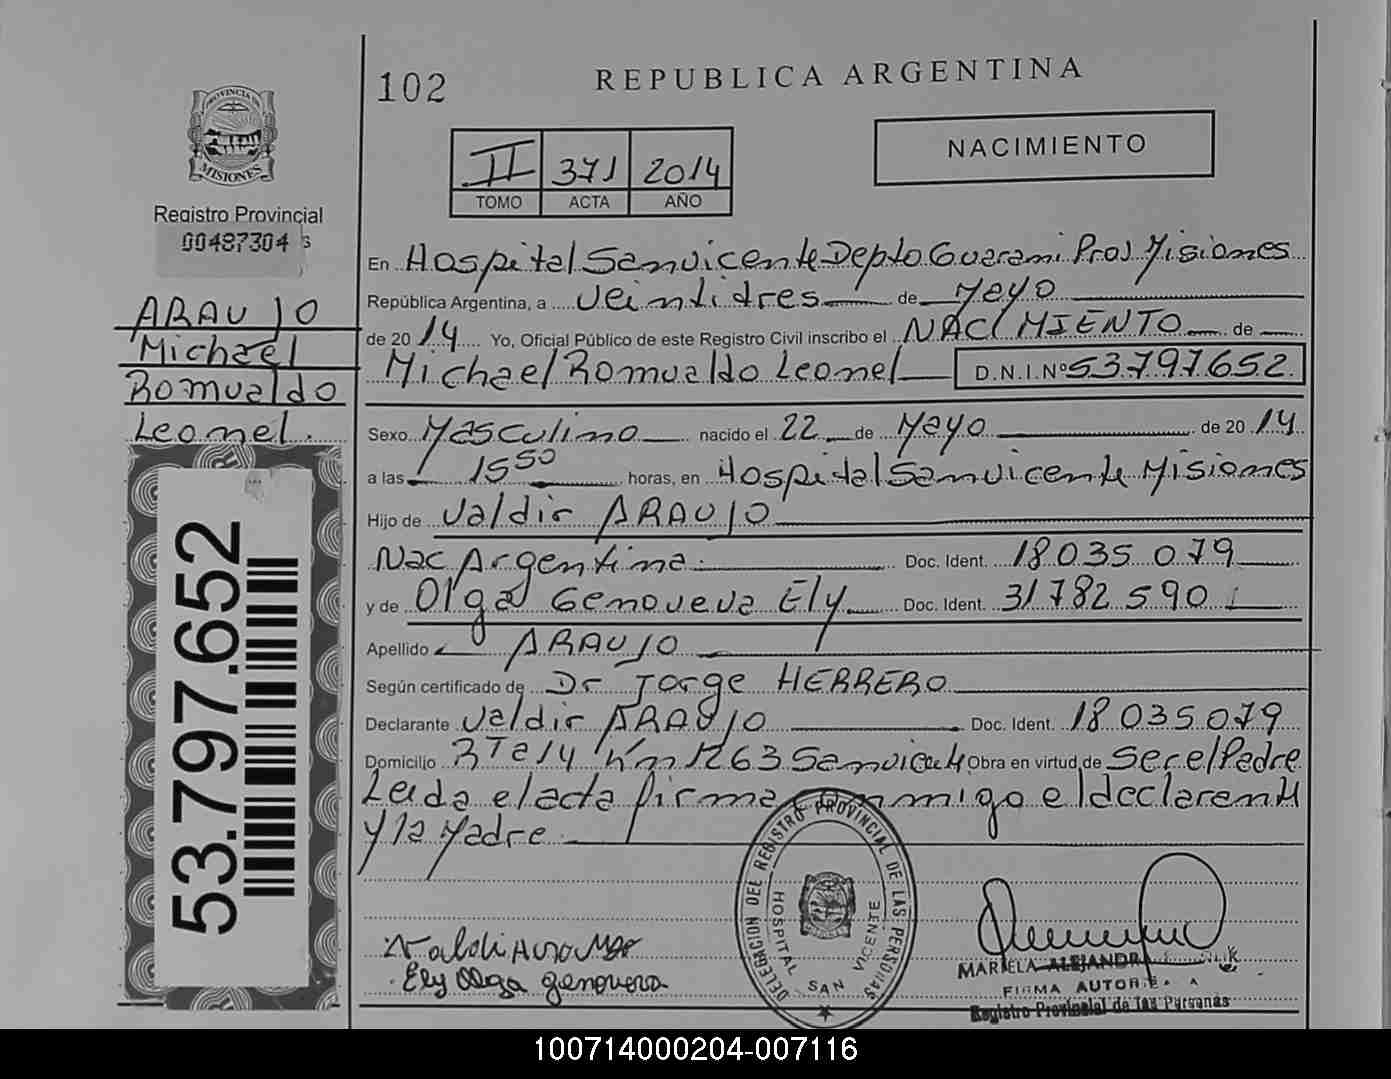 102
REPUBLICA ARGENTINA
PROVINCIA DE
MISIONES
II 371 2014
TOMO ACTA AÑO
NACIMIENTO
Registro Provincial
00487304 s
ARAUJO
Michael
Romualdo
Leonel.
53.797.652
En Hospital San vicente Depto Guarani Prov Misiones
República Argentina, a veintitres de Mayo
de 2014 Yo, Oficial Público de este Registro Civil inscribo el NACIMIENTO de
Michael Romualdo Leonel D.N.I.Nº 53797652
Sexo Masculino nacido el 22 de Mayo de 2014
a las 15 50 horas, en Hospital San vicente Misiones
Hijo de Valdir ARAUJO
Nac Argentina. Doc. Ident. 18 035 079
y de Olga Genoveva Ely Doc. Ident. 31 782 590
Apellido ARAUJO
Según certificado de Dr Jorge HERRERO
Declarante Valdir ARAUJO Doc. Ident. 18 035 079
Domicilio RTa 14 Km 1263 San vicente Obra en virtud de Ser el Padre
Leida el acta firma conmigo el declarante
y la Madre.
Ely Olga genoveva
DELEGACION DEL REGISTRO PROVINCIAL DE LAS PERSONAS
HOSPITAL SAN VICENTE
MARIELA ALEJANDRA
FIRMA AUTORIZADA
Registro Provincial de las Personas
100714000204-007116